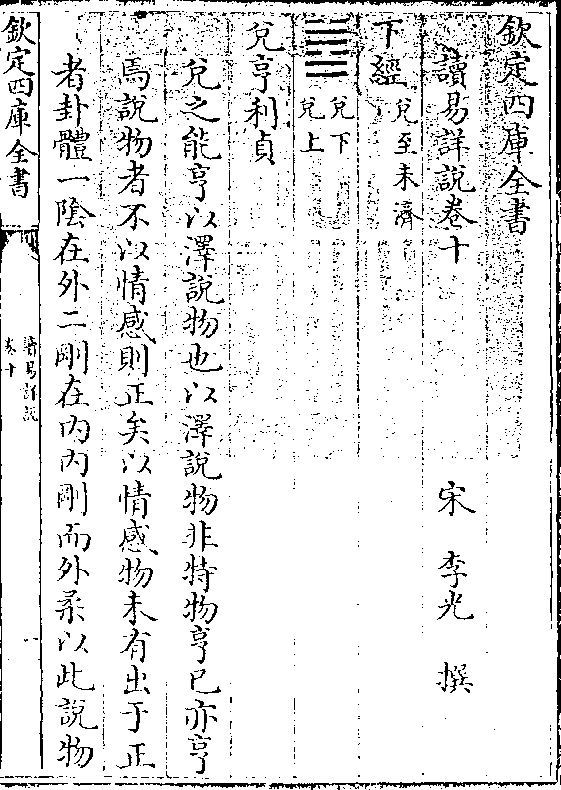 欽定四庫全書
讀易詳說卷十
宋 李光 撰
下經 兌至未濟
䷹ 兌下
兌上
兌亨利貞
兌之能亨以澤說物也以澤說物非特物亨已亦亨
焉說物者不以情感則正矣以情感物未有出于正
者卦體一陰在外二剛在内内剛而外柔以此說物
欽定四庫全書
讀易詳說
卷十
一